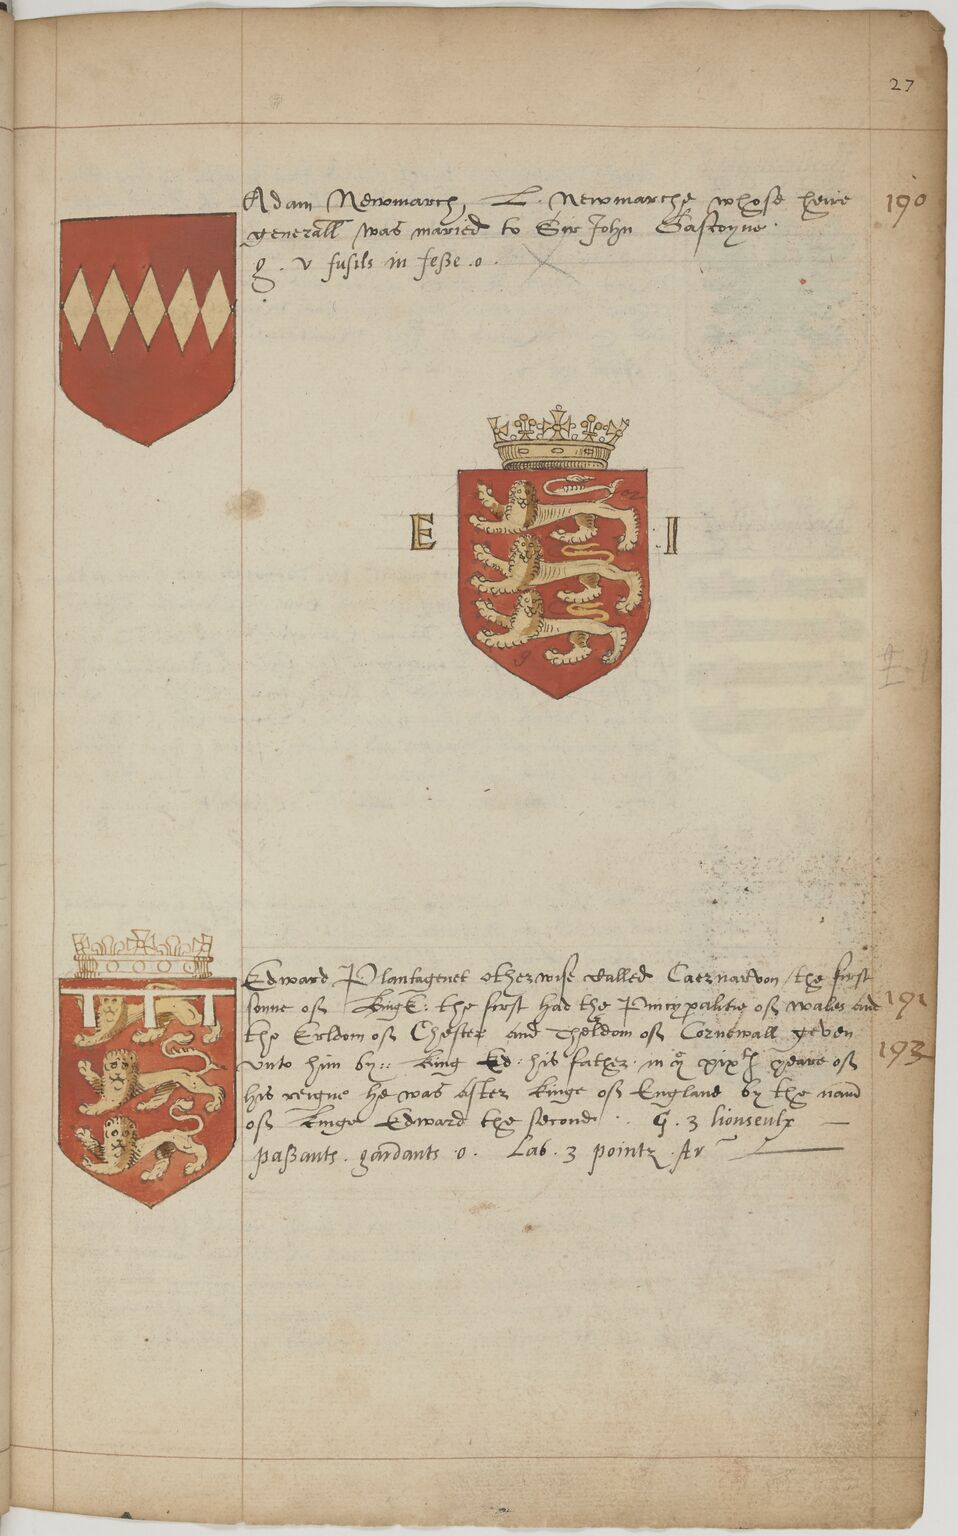 27
Adam Newmarch, L. Newmarche whose heire 190
generall was maried to Sir John Gascoyne.
g. v fusils in feße .o.
E I
Edward Plantagenet otherwise called Caernarvon the first
sonne of King E: the first had the Princypalitie of wales and 191
the Erldom of Chester and Theldom of Cornewall geven
unto him by:: King Ed: his father in yͤ xixth yeare of 193
his reigne he was after kinge of England by the name
of kinge Edward the second. G. 3 lionseulx
paßants. gardants .o. Lab. 3 pointz. Ar